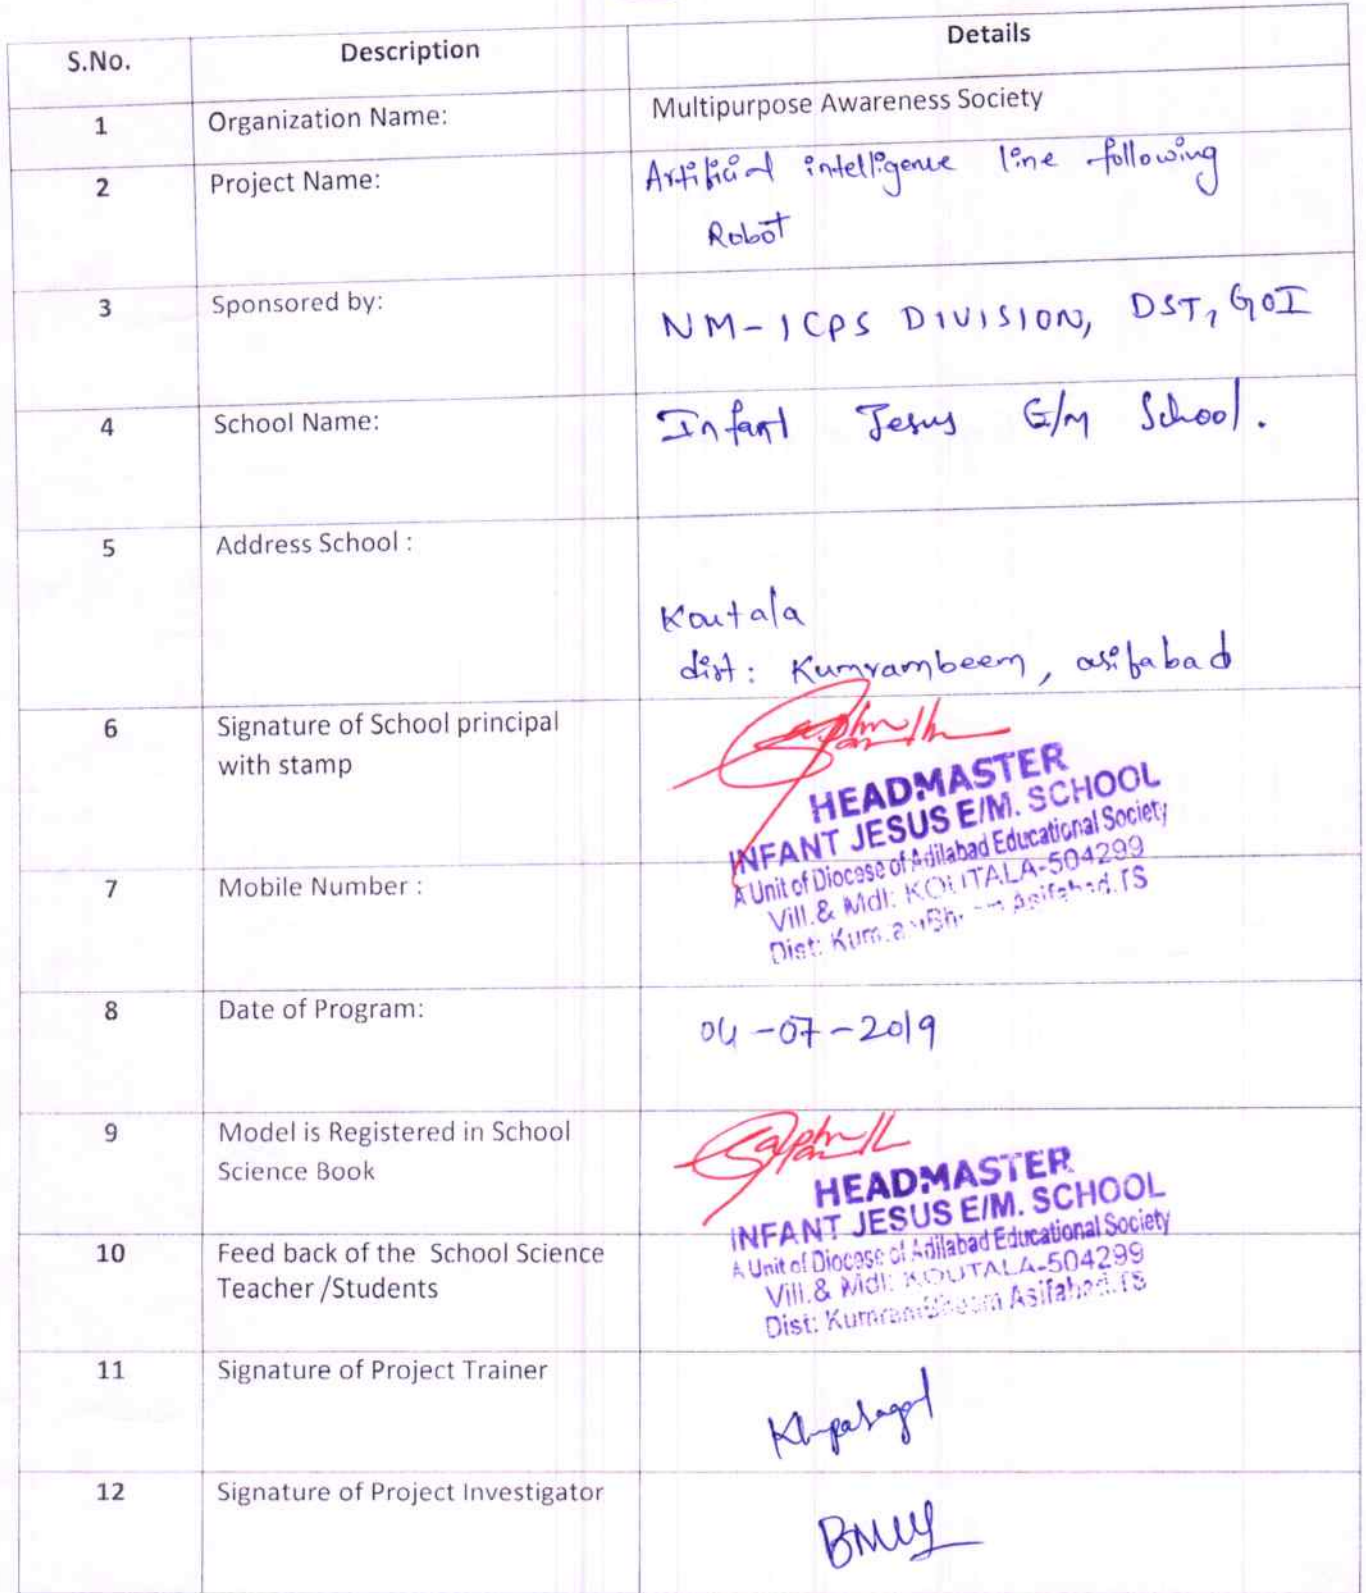 S.No. Description Details
1 Organization Name: Multipurpose Awareness Society
2 Project Name: Artificial intelligence line following
Robot
3 Sponsored by: NM-ICPS DIVISION, DST, GOI
4 School Name: Infant Jesus E/M School.
5 Address School :
Koutala
dist: Kumrambeem, asifabad
6 Signature of School principal
with stamp
HEADMASTER
INFANT JESUS E/M. SCHOOL
A Unit of Diocese of Adilabad Educational Society
Vill.& Mdl: KOUTALA-504299
Dist: Asifabad.TS
7 Mobile Number :
8 Date of Program: 04-07-2019
9 Model is Registered in School
Science Book
HEADMASTER
INFANT JESUS E/M. SCHOOL
A Unit of Diocese of Adilabad Educational Society
Vill.& Mdl: KOUTALA-504299
Dist: KumramBheem Asifabad.TS
10 Feed back of the School Science
Teacher /Students
11 Signature of Project Trainer
12 Signature of Project Investigator